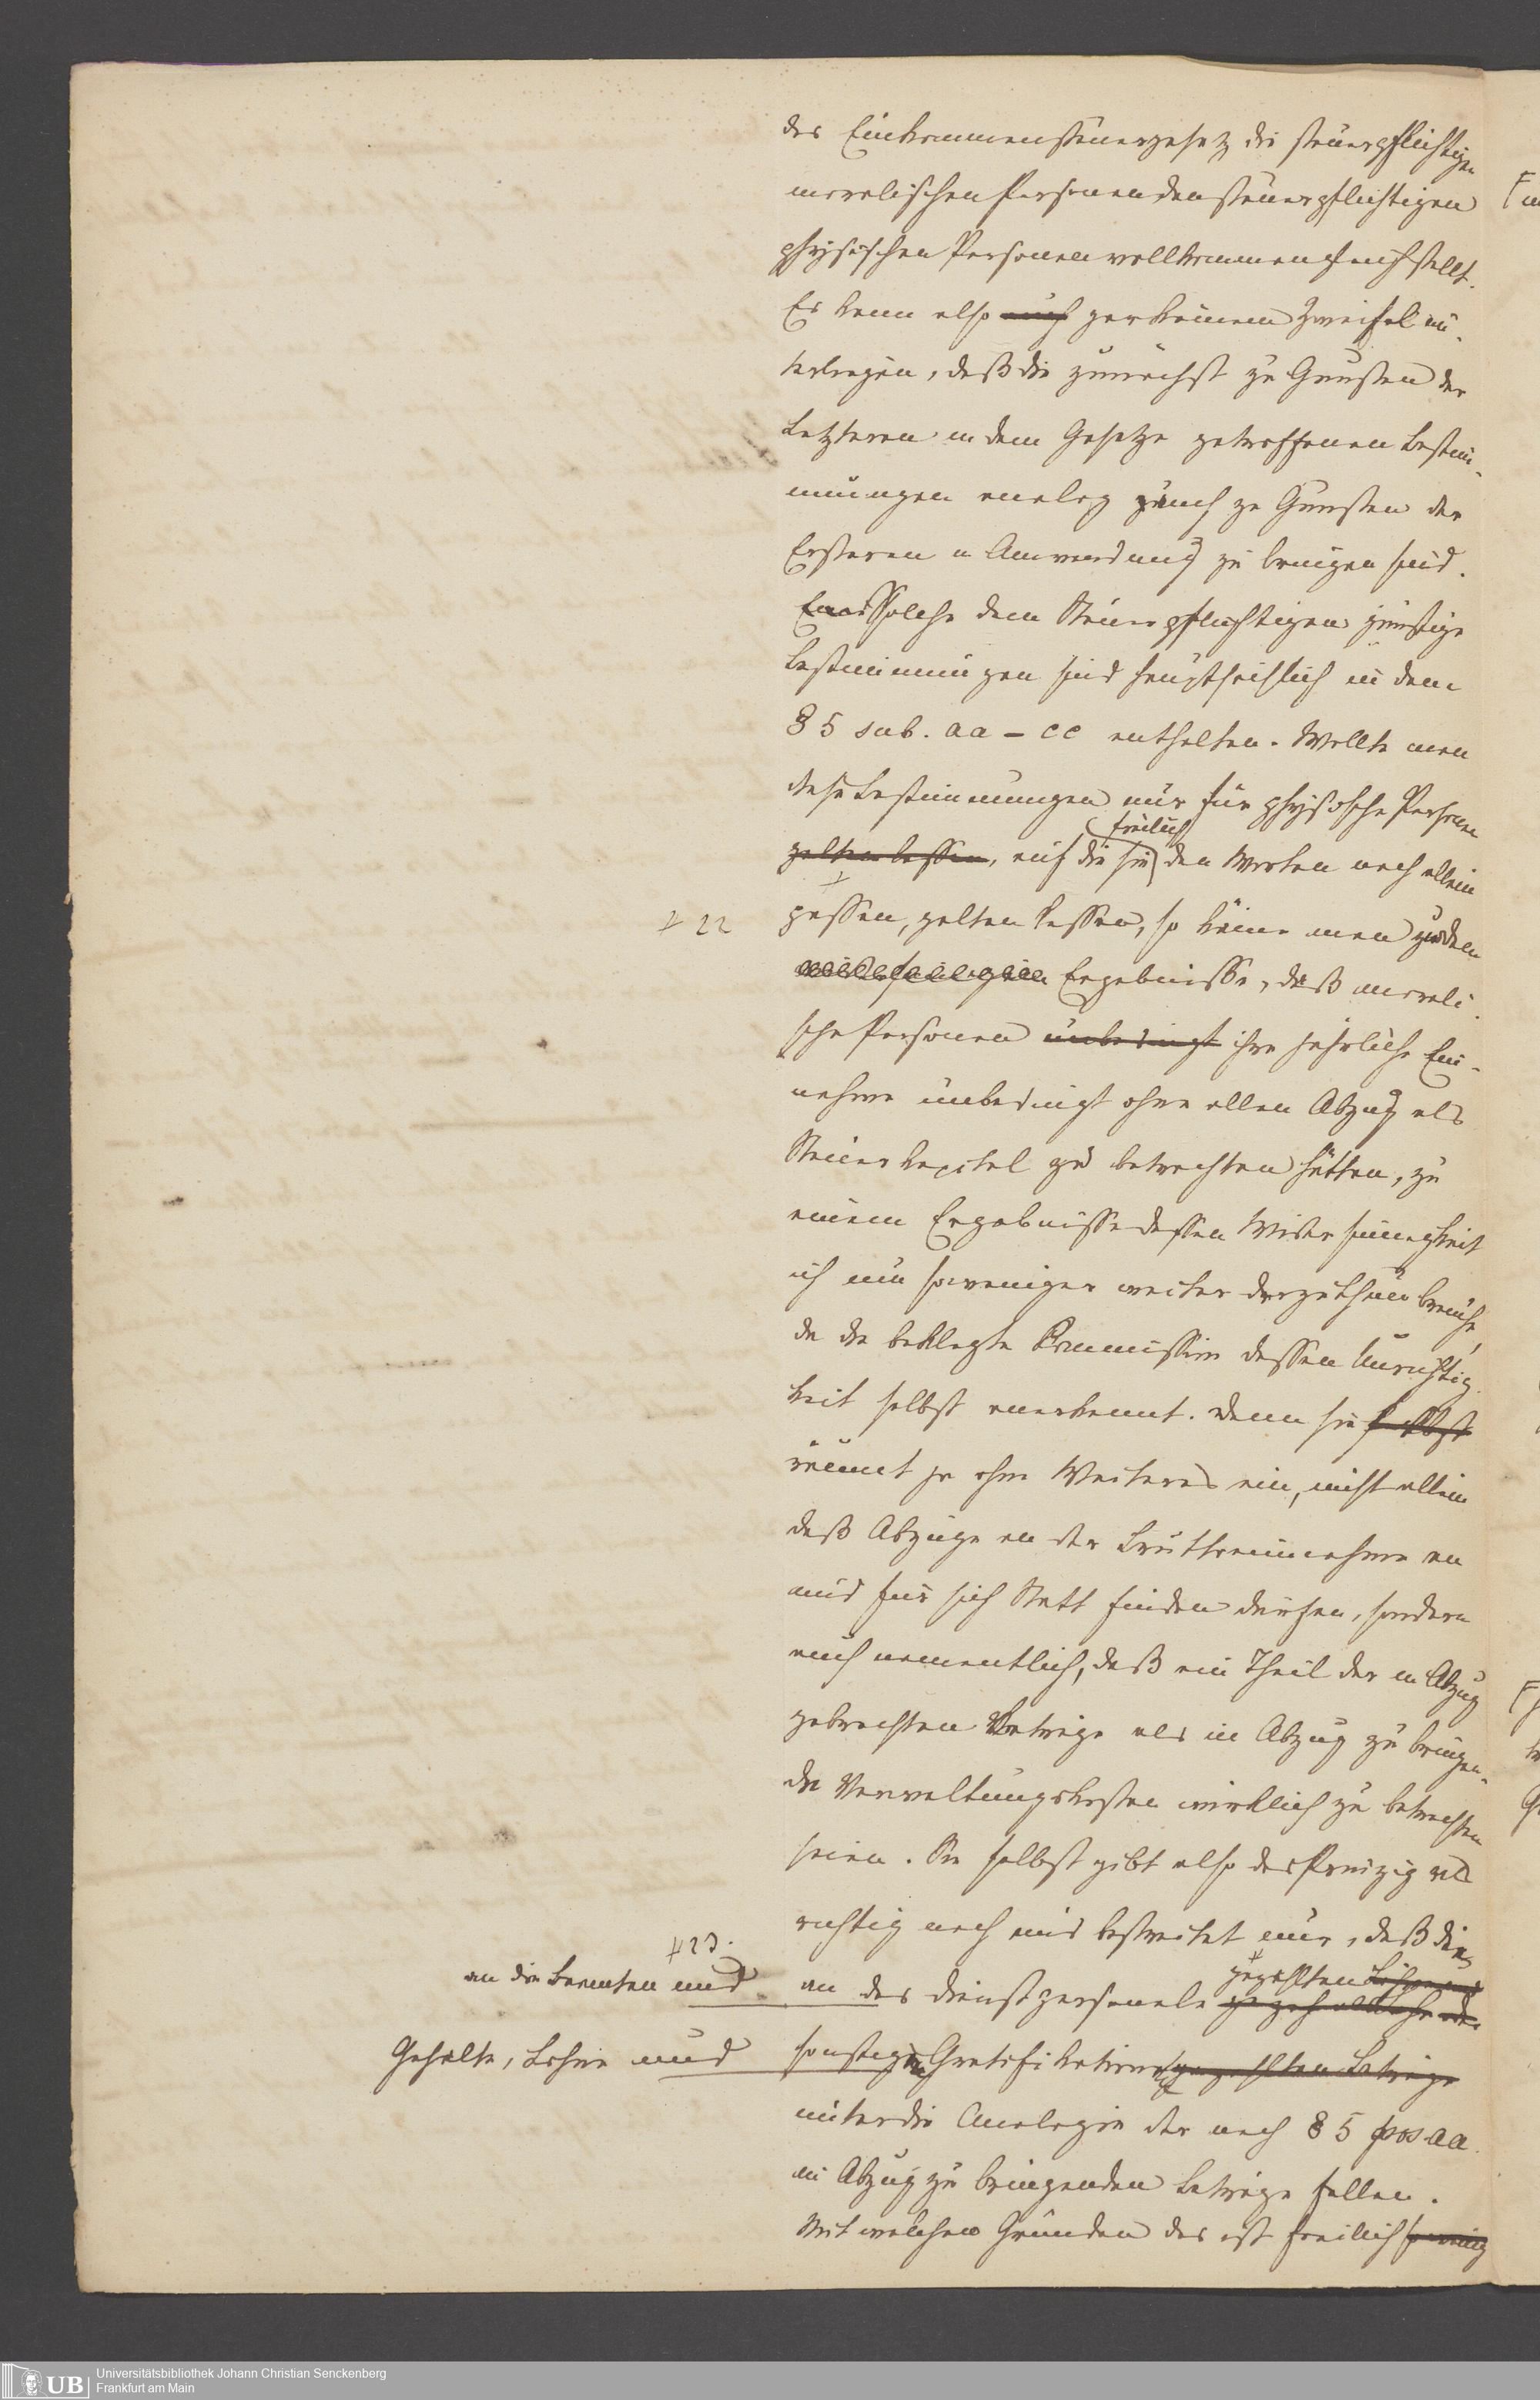 das Einkommensteuergesetz die steuerpflichtigen
moralischen Personen den steuerpflichtigen
physischen Personen vollkommen gleichstellt.
Es kann also auch gar keinem Zweifel un-
terliegen, daß die zunächst zu Gunsten der
Letzteren in dem Gesetze getroffenen Bestim-
mungen analog auch zu Gunsten der
Ersteren in Anwendung zu bringen sind.
Solche dem Steuerpflichtigen günstige
Bestimmungen sind hauptsächlich in dem
§ 5 sub. aa – cc enthalten. Wollte man
diese Bestimmungen nur für physische Personen
freilich
gelten lassen, auf die sie den Worten nach allein
+ 22
passen, gelten lassen, so käme man zu dem
widersinnigen Ergebnisse, daß morali-
sche Personen unbedingt ihre jährliche Ein-
nahme unbedingt ohne allen Abzug als
Steuerkapital zu betrachten hätten, zu
einem Ergebnisse dessen Widersinnigkeit
ich um so weniger weiter darzuthun brauche,
da die beklagte Kommission dessen Unrichtig-
keit selbst anerkennt. Denn sie selbst
räumt ja ohne Weiteres ein, nicht allein
daß Abzüge an der Bruttoeinnahme an
und für sich Statt finden dürfen, sondern
auch namentlich, daß ein Theil der in Abzug
gebrachten Beträge als in Abzug zu bringen-
de Verwaltungskosten wirklich zu betrachten
seien. Sie selbst gibt also das Prinzip als
richtig nach und bestreitet nur, daß die
+23.
an die Beamten und
gezahlten Löhne und
an das Dienstpersonale
Gehalte, Löhne und
sonstigen Gratifikationen gezahlten Beträge
unter die Analogie der nach § 5 pos. aa.
in Abzug zu bringenden Beträge fallen.
Mit welchen Gründen das ist freilich so wenig
Universitätsbibliothek Johann Christian Senckenberg
UB Frankfurt am Main